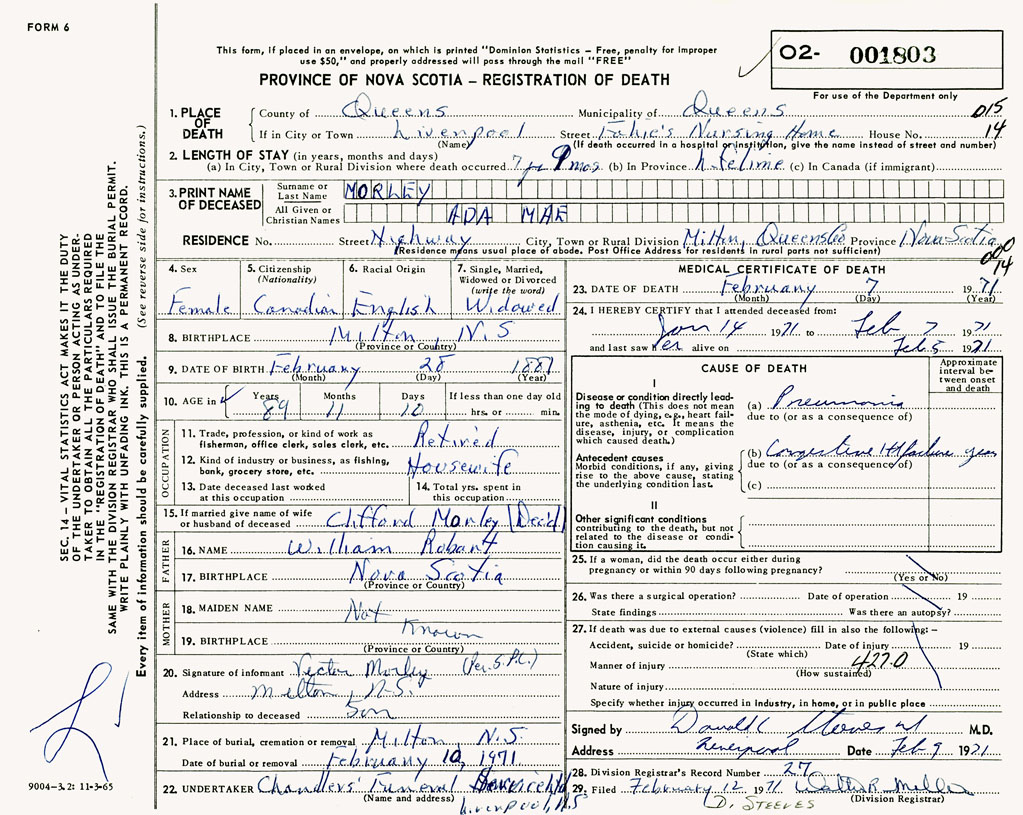 FORM 6
This form, if placed in an envelope, on which is printed "Dominion Statistics – Free, penalty for improper
use $50," and properly addressed will pass through the mail "FREE"
O2- 001803
PROVINCE OF NOVA SCOTIA – REGISTRATION OF DEATH
For use of the Department only
1. PLACE OF DEATH
County of Queens Municipality of Queens 015
If in City or Town Liverpool Street Fahie's Nursing Home House No. 14
(Name) (If death occurred in a hospital or institution, give the name instead of street and number)
2. LENGTH OF STAY (in years, months and days)
(a) In City, Town or Rural Division where death occurred 7 yr 9 mos (b) In Province lifetime (c) In Canada (if immigrant)
3. PRINT NAME OF DECEASED
Surname or Last Name MORLEY
All Given or Christian Names ADA MAE
RESIDENCE No. Street Highway City, Town or Rural Division Milton, Queens Co Province Nova Scotia
(Residence means usual place of abode. Post Office Address for residents in rural parts not sufficient)
000
14
4. Sex Female
5. Citizenship (Nationality) Canadian
6. Racial Origin English
7. Single, Married, Widowed or Divorced (write the word) Widowed
8. BIRTHPLACE Milton, N.S
(Province or Country)
9. DATE OF BIRTH February 28 1881
(Month) (Day) (Year)
10. AGE in Years Months Days If less than one day old
89 11 10 hrs. or min.
OCCUPATION
11. Trade, profession, or kind of work as fisherman, office clerk, sales clerk, etc. Retired
12. Kind of industry or business, as fishing, bank, grocery store, etc. Housewife
13. Date deceased last worked at this occupation
14. Total yrs. spent in this occupation
15. If married give name of wife or husband of deceased Clifford Morley (Dec'd)
FATHER
16. NAME William Robart
17. BIRTHPLACE Nova Scotia
(Province or Country)
MOTHER
18. MAIDEN NAME Not
19. BIRTHPLACE Known
(Province or Country)
20. Signature of informant Vector Morley (Per. S.P.C.)
Address Milton, N.S.
Relationship to deceased Son
21. Place of burial, cremation or removal Milton N.S.
Date of burial or removal February 10, 1971
22. UNDERTAKER Chandlers' Funeral Service Ltd
(Name and address) Liverpool, N.S
MEDICAL CERTIFICATE OF DEATH
23. DATE OF DEATH February 7 1971
(Month) (Day) (Year)
24. I HEREBY CERTIFY that I attended deceased from:
Jan 14 1971 to Feb 7 1971
and last saw her alive on Feb 5 1971
CAUSE OF DEATH
Approximate interval between onset and death
I
Disease or condition directly leading to death (This does not mean the mode of dying, e.g., heart failure, asthenia, etc. It means the disease, injury, or complication which caused death.)
(a) Pneumonia
due to (or as a consequence of)
Antecedent causes
Morbid conditions, if any, giving rise to the above cause, stating the underlying condition last.
(b) Congestive Ht failure years
due to (or as a consequence of)
(c)
II
Other significant conditions
contributing to the death, but not related to the disease or condition causing it.
25. If a woman, did the death occur either during
pregnancy or within 90 days following pregnancy?
(Yes or No)
26. Was there a surgical operation? Date of operation 19
State findings Was there an autopsy?
27. If death was due to external causes (violence) fill in also the following: –
Accident, suicide or homicide? Date of injury 19
(State which)
Manner of injury 427.0
(How sustained)
Nature of injury
Specify whether injury occurred in industry, in home, or in public place
Signed by Donald Steeves M.D.
Address Liverpool Date Feb 9 1971
28. Division Registrar's Record Number 27
29. Filed February 12 1971 Walter R. Miller
D. STEEVES (Division Registrar)
SEC. 14 – VITAL STATISTICS ACT MAKES IT THE DUTY
OF THE UNDERTAKER OR PERSON ACTING AS UNDER-
TAKER TO OBTAIN ALL THE PARTICULARS REQUIRED
IN THE "REGISTRATION OF DEATH" AND TO FILE THE
SAME WITH THE DIVISION REGISTRAR WHO SHALL ISSUE THE BURIAL PERMIT.
WRITE PLAINLY WITH UNFADING INK. THIS IS A PERMANENT RECORD.
Every item of information should be carefully supplied. (See reverse side for instructions.)
9004-3.2: 11-3-65